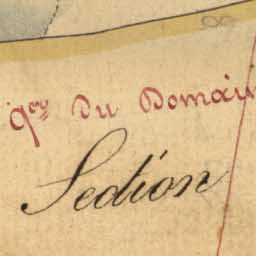 Du Domain
Section